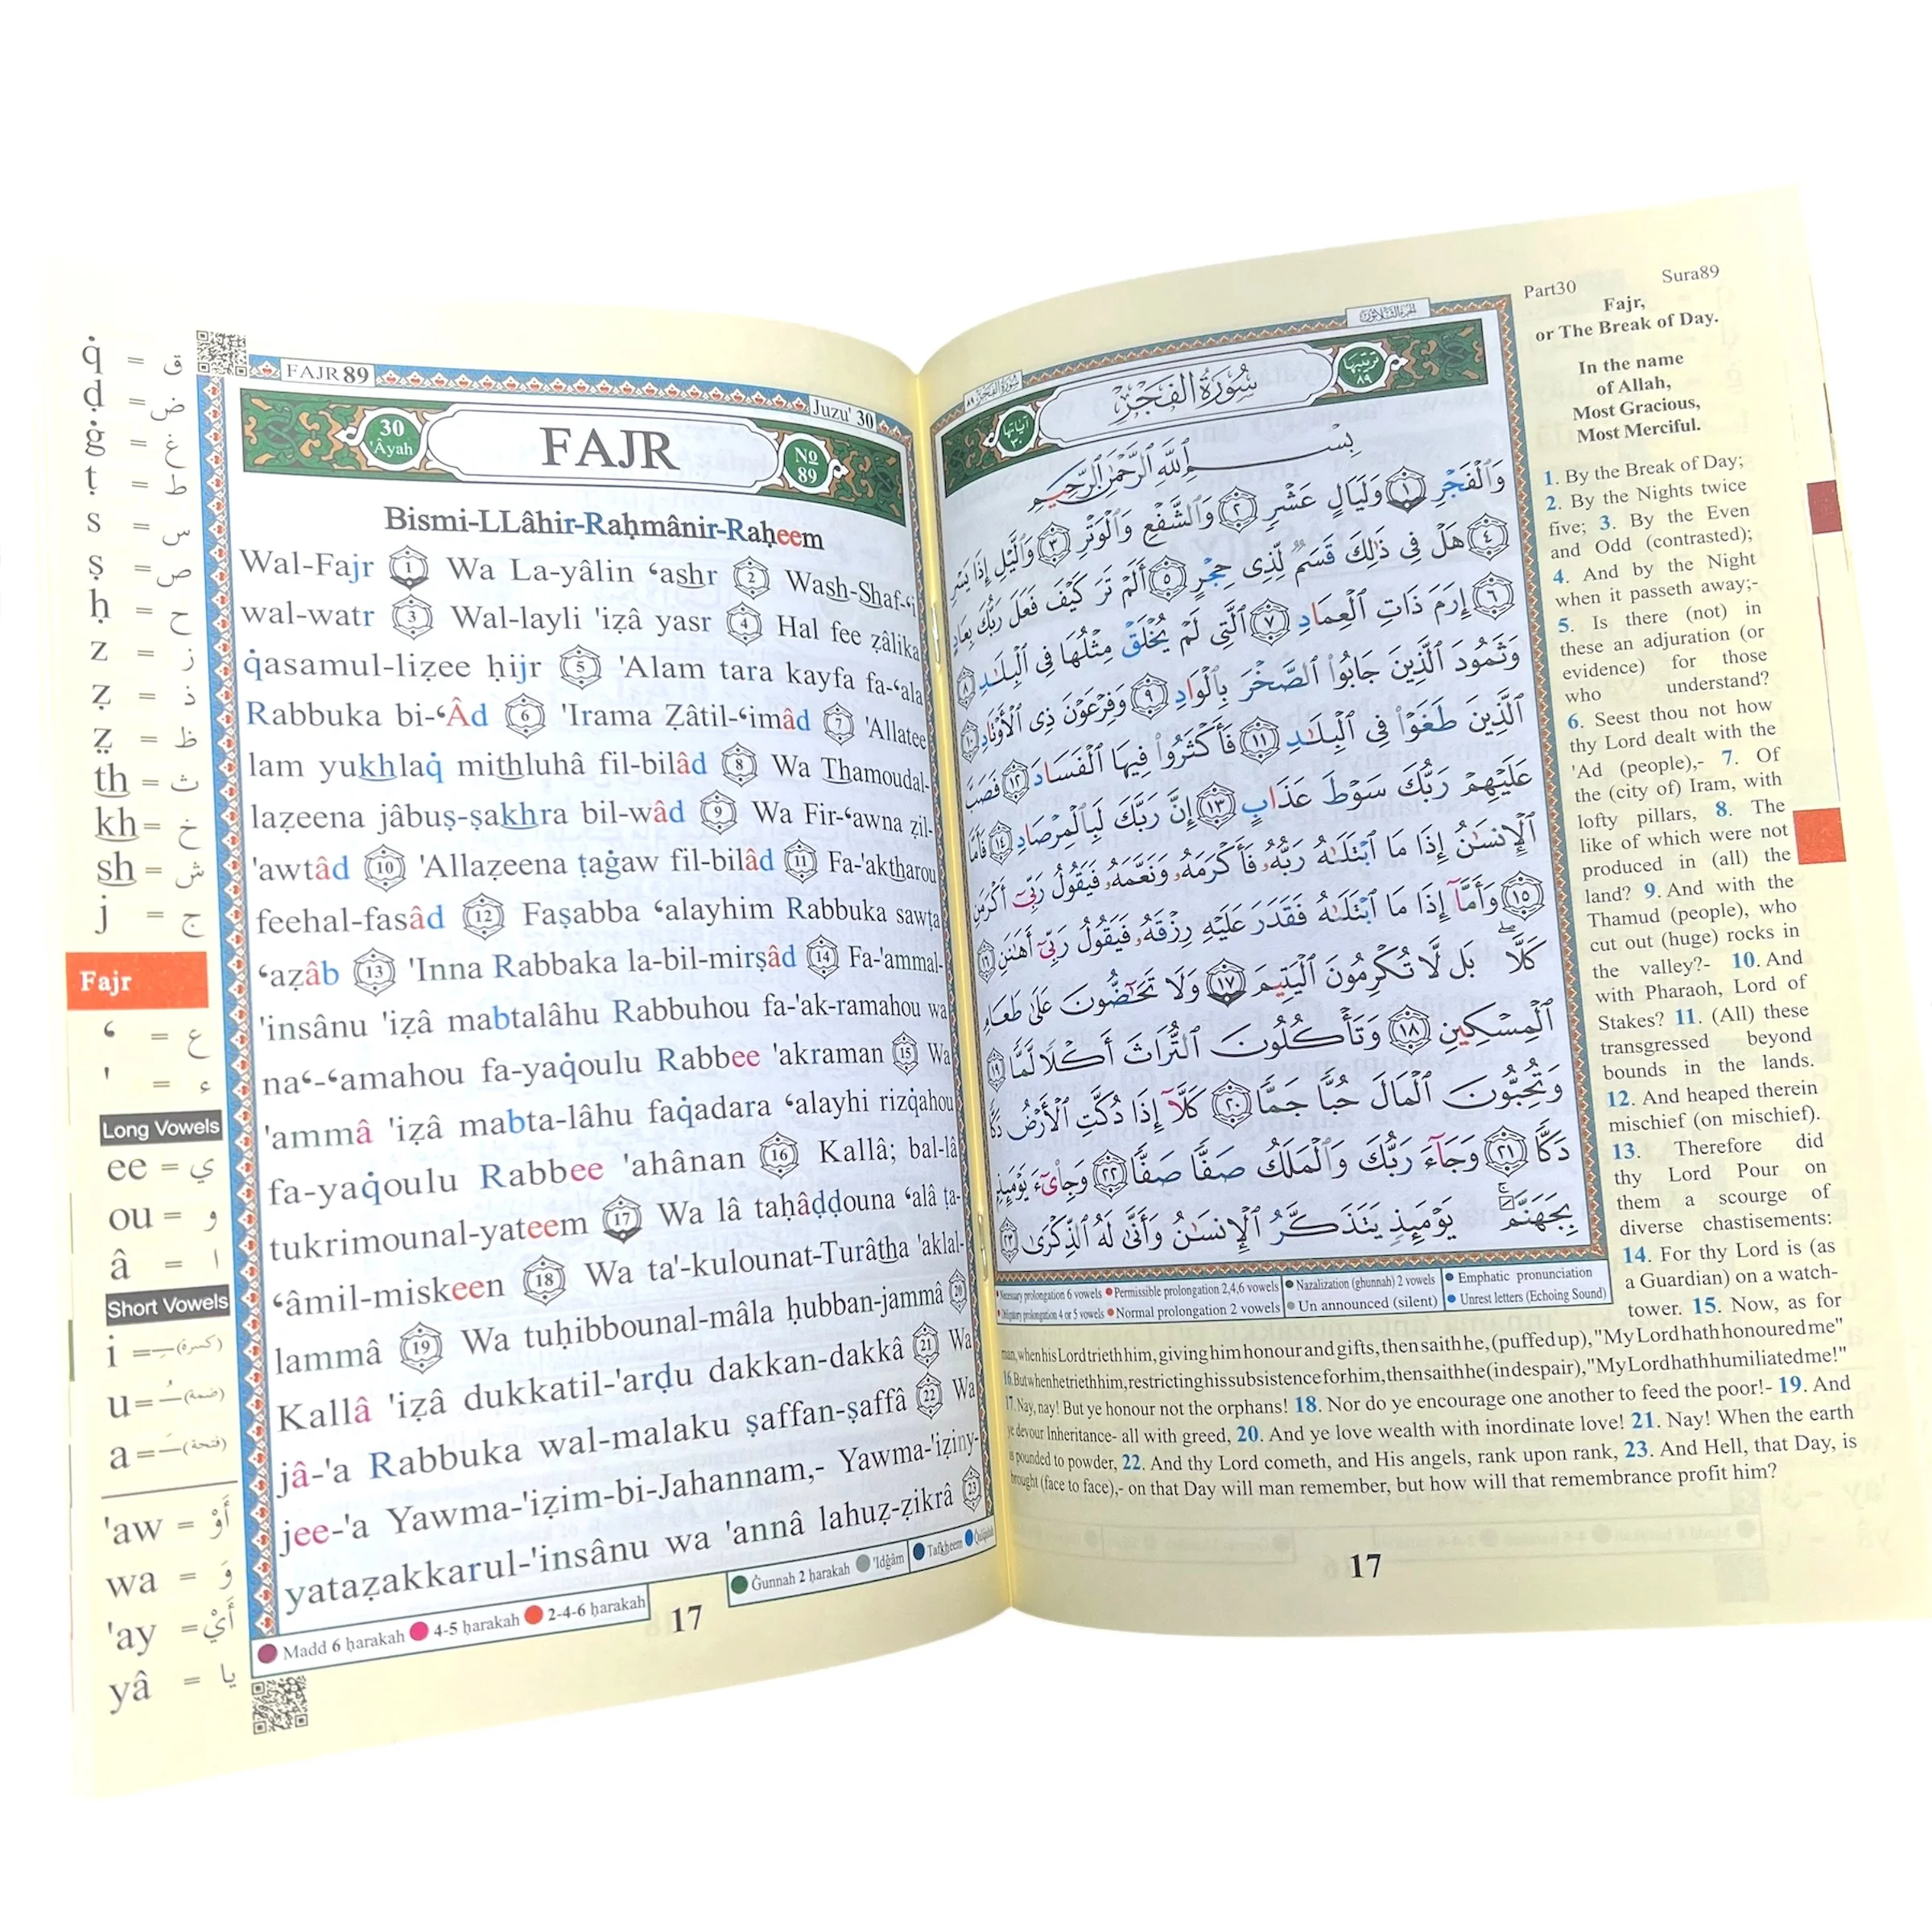 q̇ = ق
ḍ = ض
ġ = غ
ṭ = ط
s = س
ṣ = ص
ḥ = ح
z = ز
ẓ = ذ
ẓ = ظ
th = ث
kh = خ
sh = ش
j = ج
Fajr
‘ = ع
' = ء
Long Vowels
ee = ي
ou = و
â = ا
Short Vowels
i = ـِ (كسرة)
u = ـُ (ضمة)
a = ـَ (فتحة)
'aw = أَوْ
wa = وَ
'ay = أَيْ
yâ = يا
FAJR 89
Juzu' 30
30 'Âyah
FAJR
No 89
Bismi-LLâhir-Raḥmânir-Raḥeem
Wal-Fajr 1 Wa La-yâlin ‘ashr 2 Wash-Shaf-‘i
wal-watr 3 Wal-layli 'iẓâ yasr 4 Hal fee ẓâlika
q̇asamul-liẓee ḥijr 5 'Alam tara kayfa fa-‘ala
Rabbuka bi-‘Âd 6 'Irama Ẓâtil-‘imâd 7 'Allatee
lam yukhlaq̇ mithluhâ fil-bilâd 8 Wa Thamoudal-
laẓeena jâbuṣ-ṣakhra bil-wâd 9 Wa Fir-‘awna ẓil-
'awtâd 10 'Allaẓeena ṭaġaw fil-bilâd 11 Fa-'aktharou
feehal-fasâd 12 Faṣabba ‘alayhim Rabbuka sawṭa
‘aẓâb 13 'Inna Rabbaka la-bil-mirṣâd 14 Fa-'ammal-
'insânu 'iẓâ mabtalâhu Rabbuhou fa-'ak-ramahou wa
na‘-‘amahou fa-yaq̇oulu Rabbee 'akraman 15 Wa
'ammâ 'iẓâ mabta-lâhu faq̇adara ‘alayhi rizq̇ahou
fa-yaq̇oulu Rabbee 'ahânan 16 Kallâ; bal-lâ
tukrimounal-yateem 17 Wa lâ taḥâḍḍouna ‘alâ ṭa-
‘âmil-miskeen 18 Wa ta'-kulounat-Turâtha 'aklal-
lammâ 19 Wa tuḥibbounal-mâla ḥubban-jammâ 20
Kallâ 'iẓâ dukkatil-'arḍu dakkan-dakkâ 21 Wa
jâ-'a Rabbuka wal-malaku ṣaffan-ṣaffâ 22 Wa
jee-'a Yawma-'iẓim-bi-Jahannam,- Yawma-'iẓiny-
yataẓakkarul-'insânu wa 'annâ lahuẓ-ẓikrâ 23
Madd 6 ḥarakah 4-5 ḥarakah 2-4-6 ḥarakah
Ġunnah 2 ḥarakah 'Idġâm Tafkheem
17
سُورَةُ الفَجْرِ
بِسْمِ اللَّهِ الرَّحْمَٰنِ الرَّحِيمِ
وَالْفَجْرِ ١ وَلَيَالٍ عَشْرٍ ٢ وَالشَّفْعِ وَالْوَتْرِ ٣ وَاللَّيْلِ إِذَا يَسْرِ
٤ هَلْ فِى ذَٰلِكَ قَسَمٌ لِّذِى حِجْرٍ ٥ أَلَمْ تَرَ كَيْفَ فَعَلَ رَبُّكَ بِعَادٍ
٦ إِرَمَ ذَاتِ الْعِمَادِ ٧ الَّتِى لَمْ يُخْلَقْ مِثْلُهَا فِى الْبِلَٰدِ ٨
وَثَمُودَ الَّذِينَ جَابُوا الصَّخْرَ بِالْوَادِ ٩ وَفِرْعَوْنَ ذِى الْأَوْتَادِ ١٠
الَّذِينَ طَغَوْا فِى الْبِلَٰدِ ١١ فَأَكْثَرُوا فِيهَا الْفَسَادَ ١٢ فَصَبَّ
عَلَيْهِمْ رَبُّكَ سَوْطَ عَذَابٍ ١٣ إِنَّ رَبَّكَ لَبِالْمِرْصَادِ ١٤ فَأَمَّا
الْإِنسَٰنُ إِذَا مَا ابْتَلَىٰهُ رَبُّهُۥ فَأَكْرَمَهُۥ وَنَعَّمَهُۥ فَيَقُولُ رَبِّىٓ أَكْرَمَنِ
١٥ وَأَمَّآ إِذَا مَا ابْتَلَىٰهُ فَقَدَرَ عَلَيْهِ رِزْقَهُۥ فَيَقُولُ رَبِّىٓ أَهَٰنَنِ ١٦
كَلَّا بَل لَّا تُكْرِمُونَ الْيَتِيمَ ١٧ وَلَا تَحَٰٓضُّونَ عَلَىٰ طَعَامِ
الْمِسْكِينِ ١٨ وَتَأْكُلُونَ التُّرَاثَ أَكْلًا لَّمًّا ١٩
وَتُحِبُّونَ الْمَالَ حُبًّا جَمًّا ٢٠ كَلَّآ إِذَا دُكَّتِ الْأَرْضُ دَكًّا
دَكًّا ٢١ وَجَآءَ رَبُّكَ وَالْمَلَكُ صَفًّا صَفًّا ٢٢ وَجِا۟ىٓءَ يَوْمَئِذٍۭ
بِجَهَنَّمَ يَوْمَئِذٍ يَتَذَكَّرُ الْإِنسَٰنُ وَأَنَّىٰ لَهُ الذِّكْرَىٰ ٢٣
Necessary prolongation 6 vowels Permissible prolongation 2,4,6 vowels Nazalization (ghunnah) 2 vowels Emphatic pronunciation
Obligatory prolongation 4 or 5 vowels Normal prolongation 2 vowels Un announced (silent) Unrest letters (Echoing Sound)
Part30 Sura89
Fajr,
or The Break of Day.
In the name
of Allah,
Most Gracious,
Most Merciful.
1. By the Break of Day;
2. By the Nights twice
five; 3. By the Even
and Odd (contrasted);
4. And by the Night
when it passeth away;-
5. Is there (not) in
these an adjuration (or
evidence) for those
who understand?
6. Seest thou not how
thy Lord dealt with the
'Ad (people),- 7. Of
the (city of) Iram, with
lofty pillars, 8. The
like of which were not
produced in (all) the
land? 9. And with the
Thamud (people), who
cut out (huge) rocks in
the valley?- 10. And
with Pharaoh, Lord of
Stakes? 11. (All) these
transgressed beyond
bounds in the lands.
12. And heaped therein
mischief (on mischief).
13. Therefore did
thy Lord Pour on
them a scourge of
diverse chastisements:
14. For thy Lord is (as
a Guardian) on a watch-
tower. 15. Now, as for
man, when his Lord trieth him, giving him honour and gifts, then saith he, (puffed up), "My Lord hath honoured me"
16. But when he trieth him, restricting his subsistence for him, then saith he (in despair), "My Lord hath humiliated me!"
17. Nay, nay! But ye honour not the orphans! 18. Nor do ye encourage one another to feed the poor!- 19. And
ye devour Inheritance- all with greed, 20. And ye love wealth with inordinate love! 21. Nay! When the earth
is pounded to powder, 22. And thy Lord cometh, and His angels, rank upon rank, 23. And Hell, that Day, is
brought (face to face),- on that Day will man remember, but how will that remembrance profit him?
17